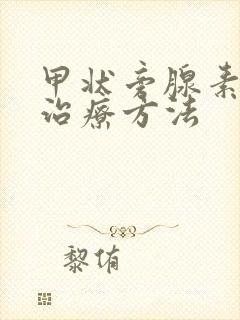 甲状旁腺素
治疗方法
黎侑